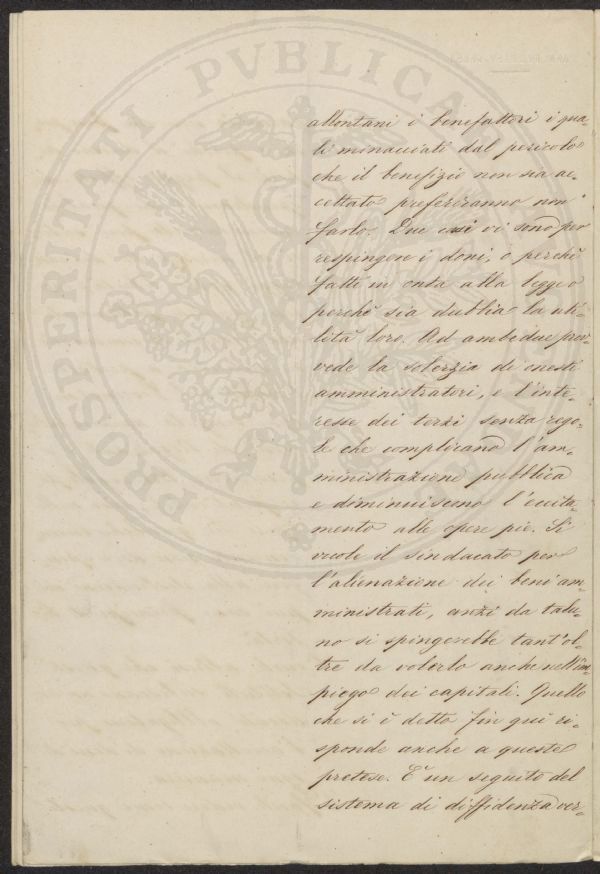 allontani i benefattori i qua-
li minacciati dal pericolo
che il benefizio non sia ac-
cettato preferiranno non
farlo. Due casi vi sono per
respingere i doni, o perchè
fatti in onta alla legge o
perchè sia dubbia la uti-
lità loro. Ad ambedue prov-
vede la solerzia di onesti
amministratori, e l'inte-
resse dei terzi senza rego-
le che complicano l'am-
ministrazione pubblica
e diminuiscono l'eccita-
mento alle opere pie. Si
vuole il sindacato per
l'alienazione dei beni am-
ministrati, anzi da talu-
no si spingerebbe tant'ol-
tre da volerlo anche nell'im-
piego dei capitali. Quello
che si è detto fin qui ri-
sponde anche a queste
pretese. È un seguito del
sistema di diffidenza ver-
PROSPERITATI PVBLICAE